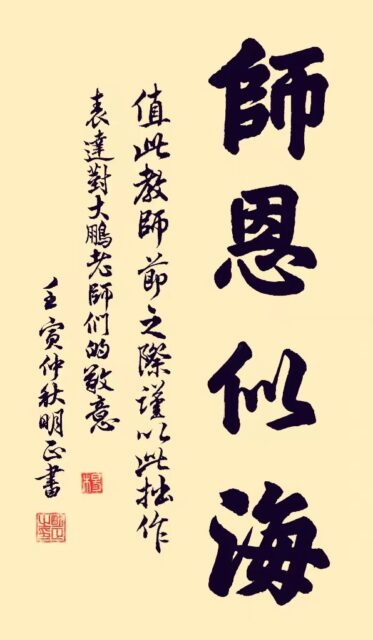 師恩似海
值此教師節之際謹以此拙作
表達對大鵬老師們的敬意
壬寅仲秋明正書